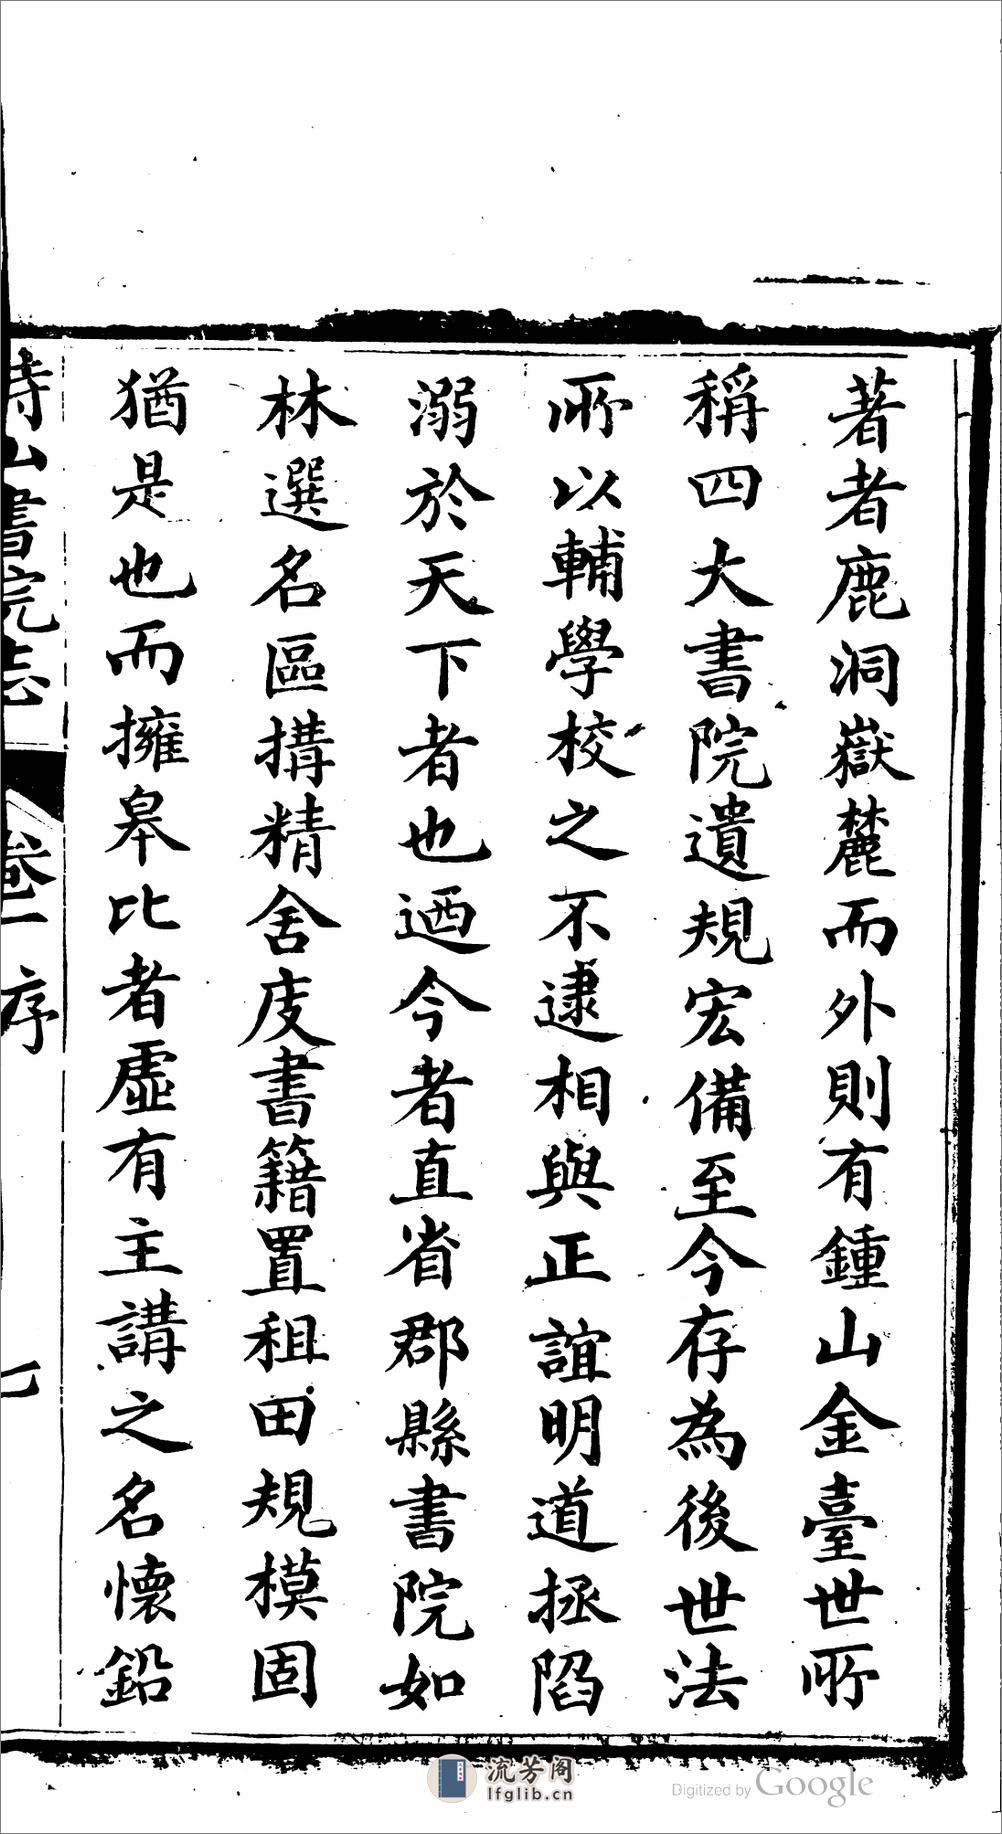 著者鹿洞嶽麓而外則有鍾山金臺世所
稱四大書院遺規宏備至今存為後世法
所以輔學校之不逮相與正誼明道拯陷
溺於天下者也迺今者直省郡縣書院如
林選名區搆精舍庋書籍置租田規模固
猶是也而擁皋比者虛有主講之名懷鉛
詩山書院志 卷一 序 七
流芳阁
lfglib.cn
Digitized by Google